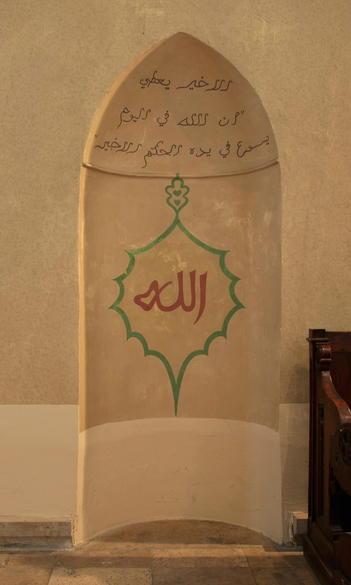 الاخير يعطي
"ان الله في اليوم
يسوع في يده الحكم الاخير"
الله